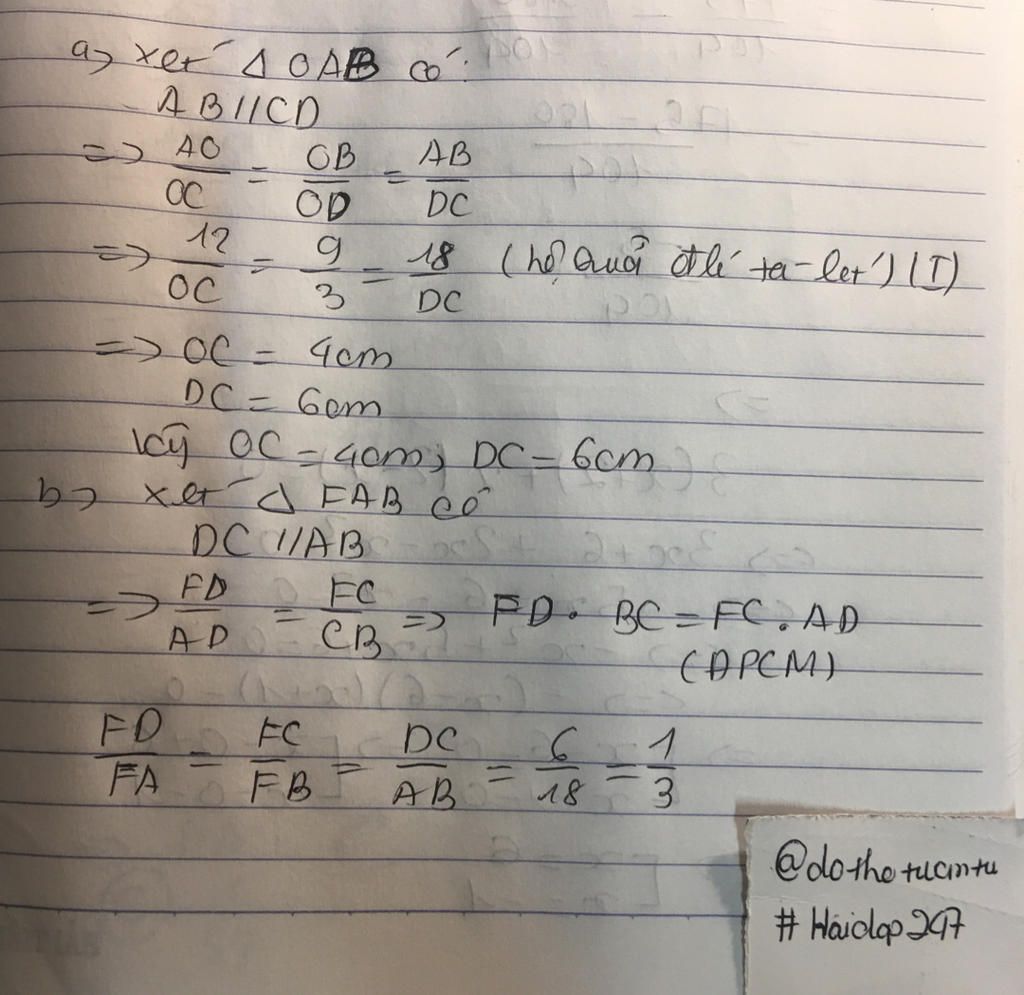 a, xét Δ OAB có:
AB//CD
=> AO/OC = OB/OD = AB/DC
=> 12/OC = 9/3 = 18/DC (hệ quả đlí ta-let) (I)
=> OC = 4cm
DC = 6cm
Vậy OC = 4cm; DC = 6cm
b, xét Δ FAB có
DC //AB
=> FD/AD = FC/CB => FD. BC = FC. AD
(DPCM)
FD/FA = FC/FB = DC/AB = 6/18 = 1/3
@dothetuantu
# Hoidap247